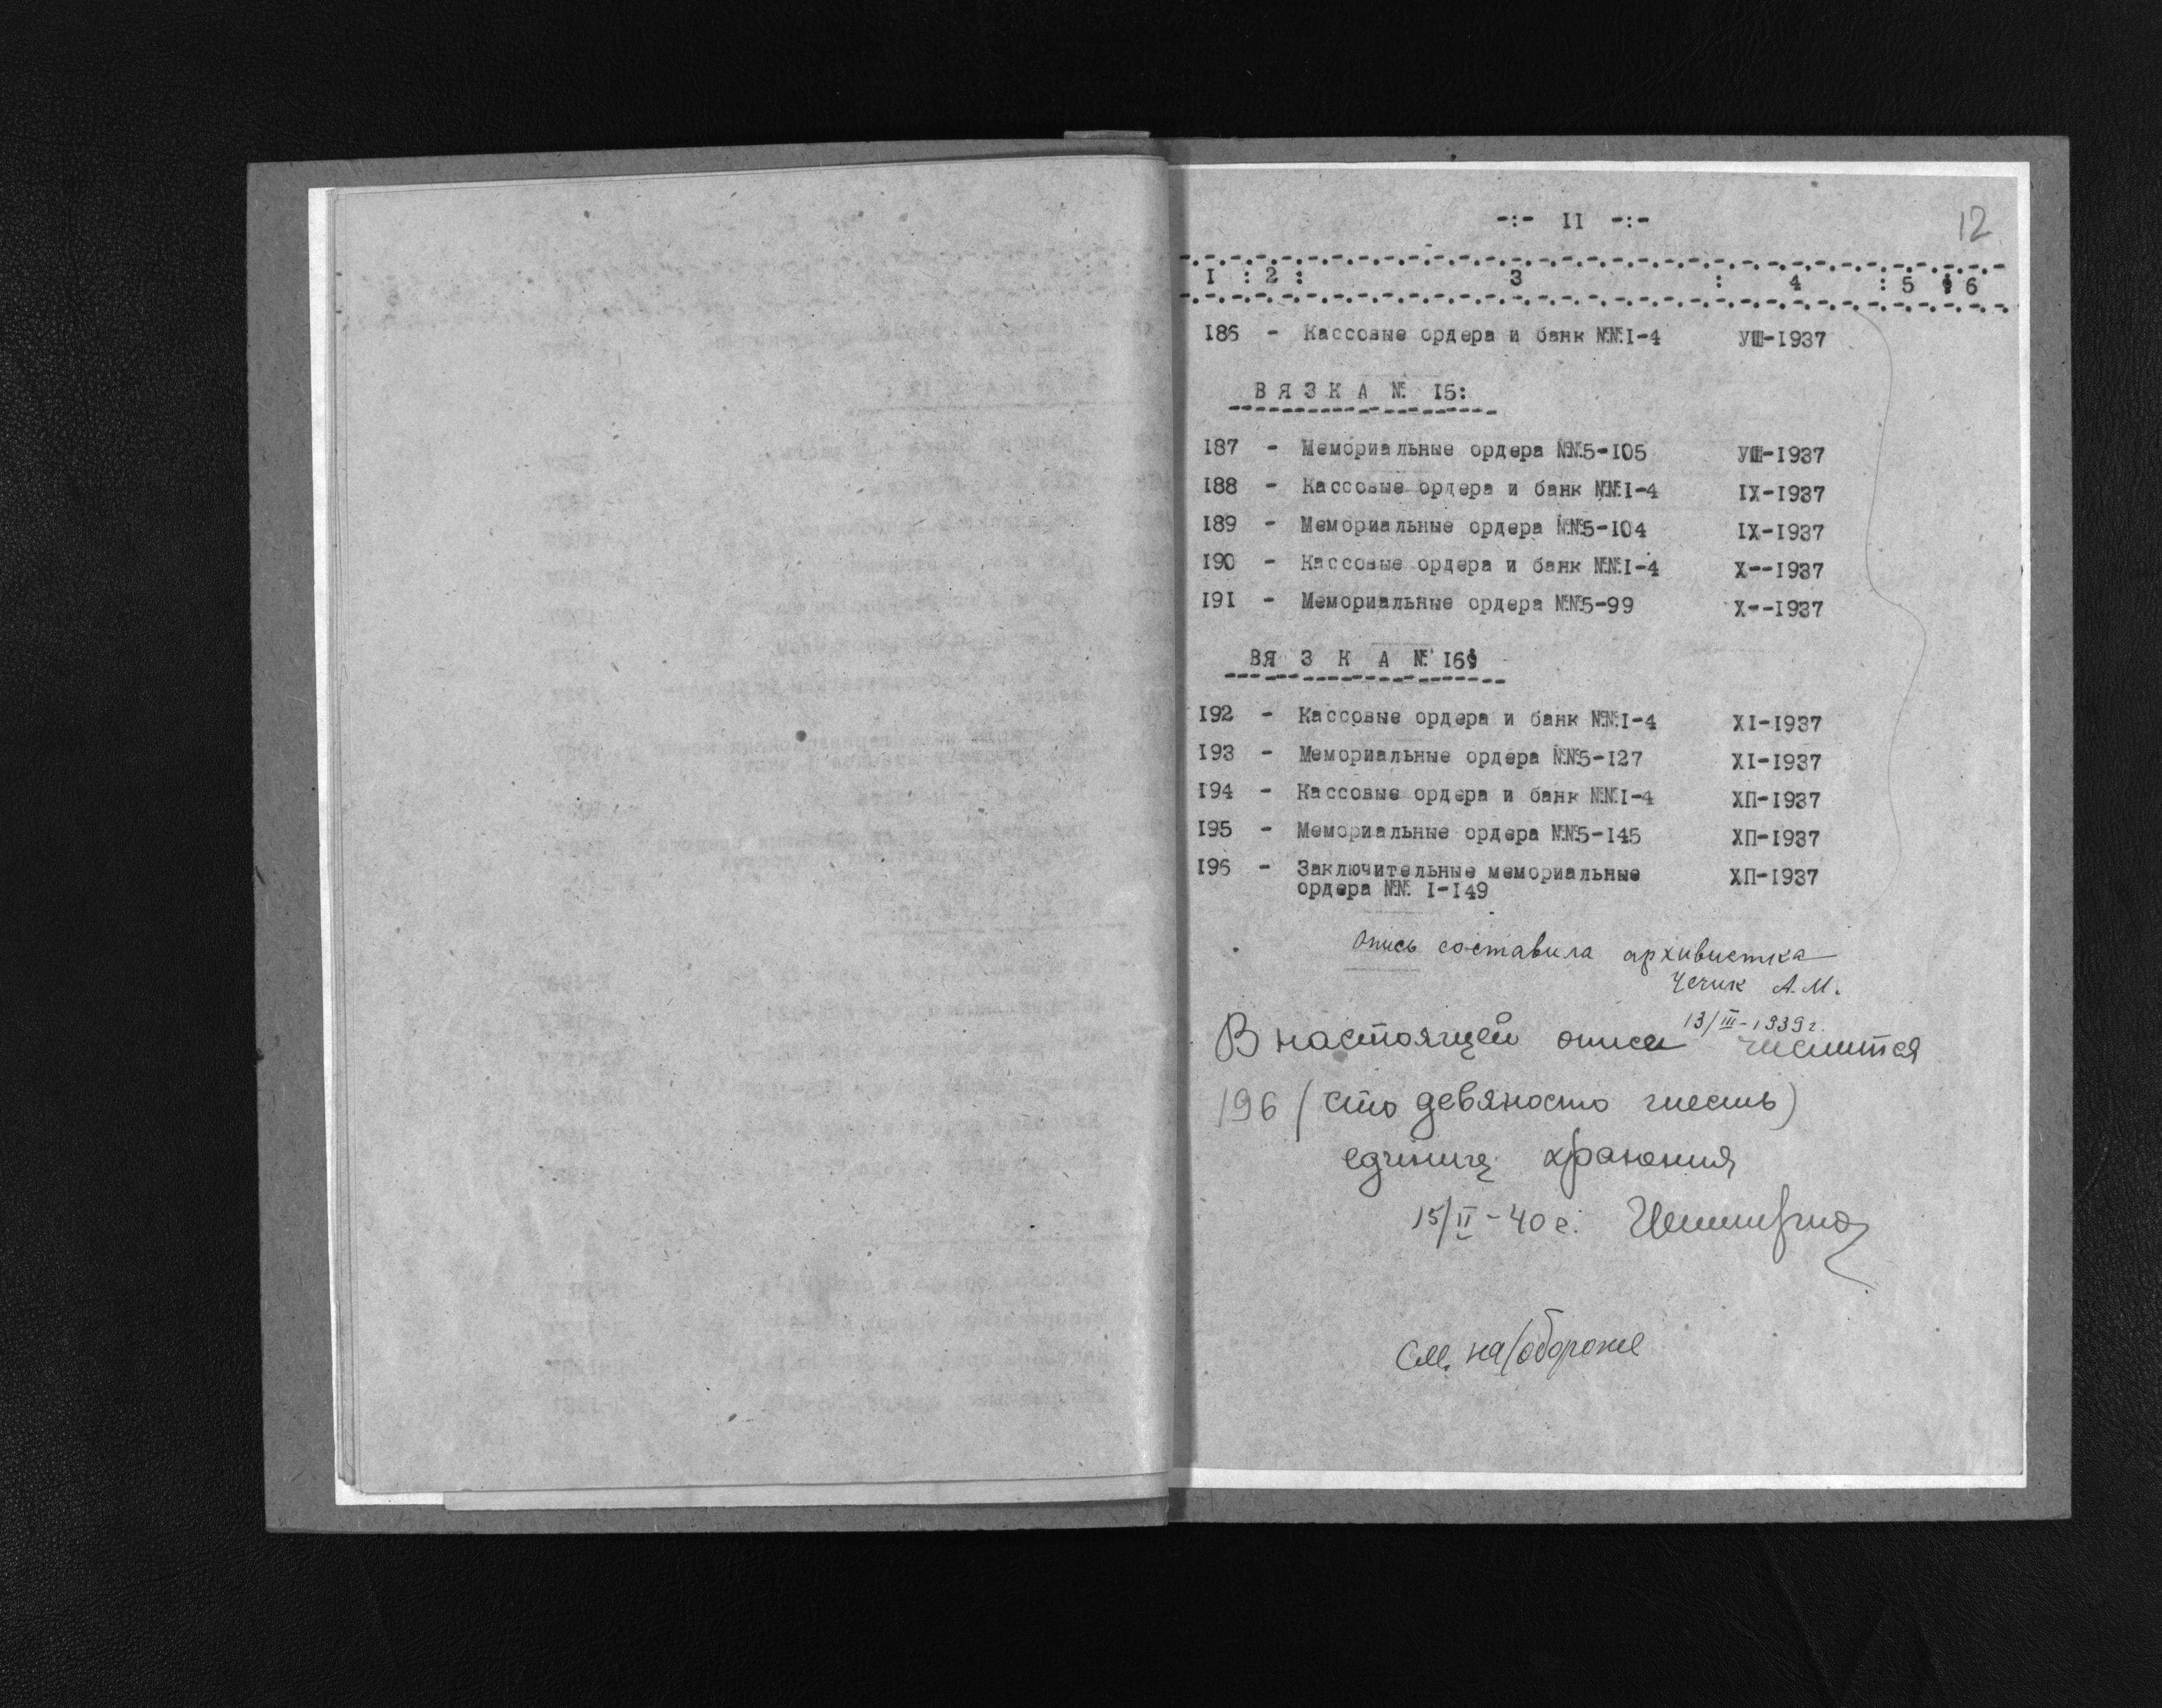 -:- II -:-
12
I : 2 : 3 : 4 : 5 : 6
I86 - Кассовые ордера и банк №№I-4 УШ-I937
В Я З К А № I5:
I87 - Мемориальные ордера №№5-I05 УШ-I937
I88 - Кассовые ордера и банк №№I-4 IX-I937
I89 - Мемориальные ордера №№5-I04 IX-I937
I90 - Кассовые ордера и банк №№I-4 X--I937
I9I - Мемориальные ордера №№5-99 X--I937
ВЯ З К А № I6:
I92 - Кассовые ордера и банк №№I-4 XI-I937
I93 - Мемориальные ордера №№5-I27 XI-I937
I94 - Кассовые ордера и банк №№I-4 ХП-I937
I95 - Мемориальные ордера №№5-I45 ХП-I937
I96 - Заключительные мемориальные ХП-I937
ордера №№ I-I49
Опись составила архивистка
А.М.
13/III-1939г.
В настоящей описи числится
196 (сто девяносто шесть)
единиц хранения
15/II-40г.
См. на/обороте